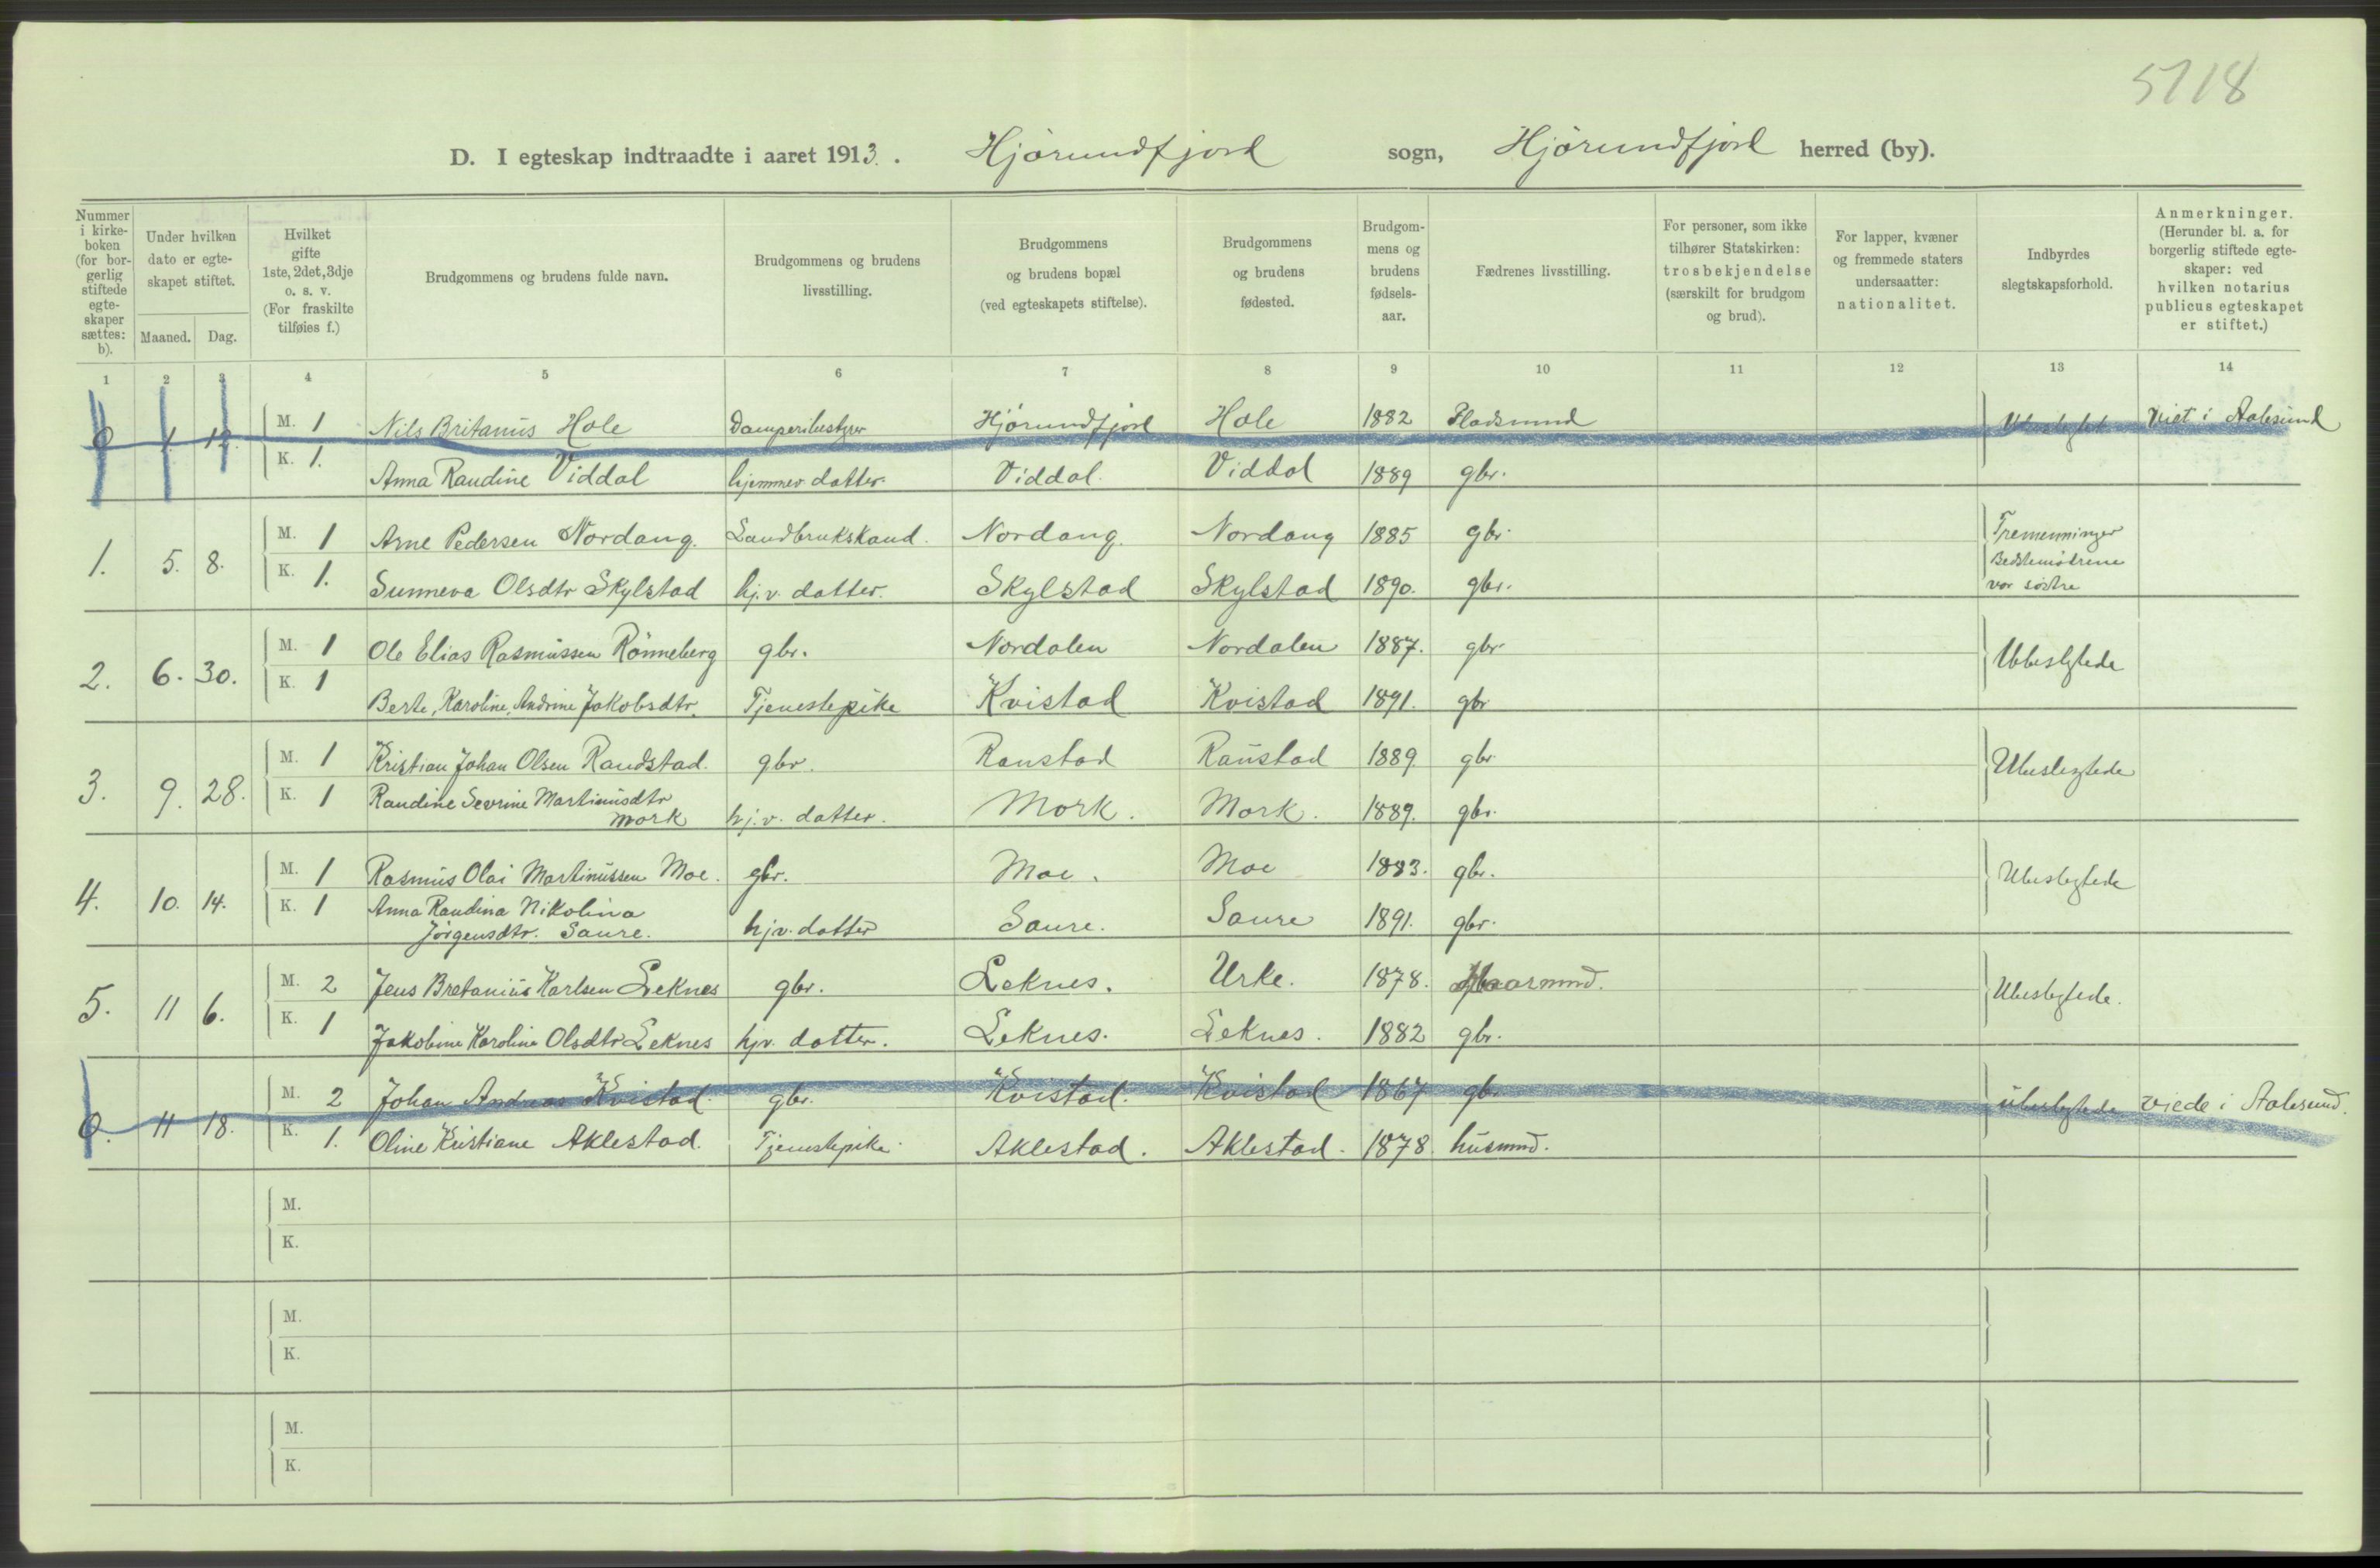 5718
D. I egteskap indtraadte i aaret 1913. Hjørundfjord sogn, Hjørundfjord herred (by).
Nummer i kirkeboken (for borgerlig stiftede egteskaper sættes: b).
Under hvilken dato er egteskapet stiftet.
Maaned. Dag.
Hvilket gifte 1ste, 2det, 3dje o. s. v. (For fraskilte tilføies f.)
Brudgommens og brudens fulde navn.
Brudgommens og brudens livsstilling.
Brudgommens og brudens bopæl (ved egteskapets stiftelse).
Brudgommens og brudens fødested.
Brudgommens og brudens fødselsaar.
Fædrenes livsstilling.
For personer, som ikke tilhører Statskirken: trosbekjendelse (særskilt for brudgom og brud).
For lapper, kvæner og fremmede staters undersaatter: nationalitet.
Indbyrdes slegtskapsforhold.
Anmerkninger. (Herunder bl. a. for borgerlig stiftede egteskaper: ved hvilken notarius publicus egteskapet er stiftet.)
1 2 3 4 5 6 7 8 9 10 11 12 13 14
0 1. 12. M. 1 Nils Britanius Hole Hjørundfjord Hole 1882 Pladsmnd Ubeslegtet Viet i Aalesund
K. 1. Anna Raudine Viddal hjemmev. datter. Viddal. Viddal 1889 gbr.
1. 5. 8. M. 1 Arne Pedersen Nordang. Landbrukskand. Nordang. Nordang 1885 gbr. Tremenninger
Bedstemødrene
K. 1. Sunneva Olsdtr Skylstad hj.v. datter. Skylstad Skylstad 1890. gbr. var søstre
2. 6. 30. M. 1 Ole Elias Rasmussen Rønneberg gbr. Nordalen Nordalen 1887. gbr Ubeslegtede
K. 1 Berte, Karoline, Andrine Jakobsdtr. Tjenestepike Kvistad Kvistad 1891. gbr
3. 9. 28. M. 1 Kristian Johan Olsen Raudstad. gbr. Raustad Raustad 1889 gbr. Ubeslegtede
K. 1 Raudine Sevrine Martinusdtr
Mork hj.v. datter. Mork. Mork. 1889. gbr.
4. 10. 14. M. 1 Rasmus Olai Martinussen Moe. gbr. Moe. Moe 1883. gbr. Ubeslegtede
K. 1 Anna Raudina Nikolina
Jørgensdtr. Saure. hjv. datter Saure. Saure 1891. gbr.
5. 11 6. M. 2 Jens Bretanius Karlsen Leknes gbr. Leknes. Urke. 1878. Ubeslegtede.
K. 1 Jakobine Karoline Olsdtr Leknes hjv. datter. Leknes. Leknes. 1882 gbr.
0. 11 18. M. 2 Johan Andreas Kvistad. gbr. Kvistad. Kvistad 1867 gbr ubeslegtede viede i Aalesund.
K. 1. Oline Kristiane Aklestad. Tjenestepike. Aklestad. Aklestad. 1878. husmnd.
M.
K.
M.
K.
M.
K.